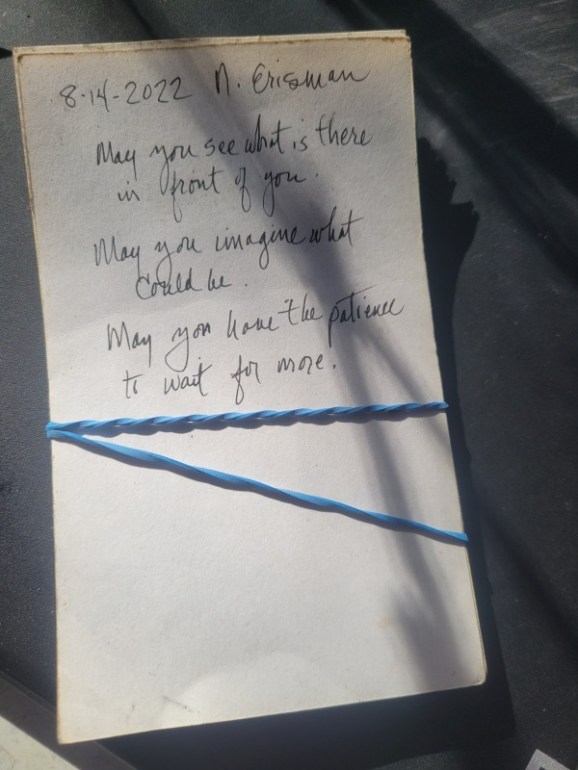 8-14-2022 N. Erisman
May you see what is there
in front of you.
May you imagine what
could be.
May you have the patience
to wait for more.